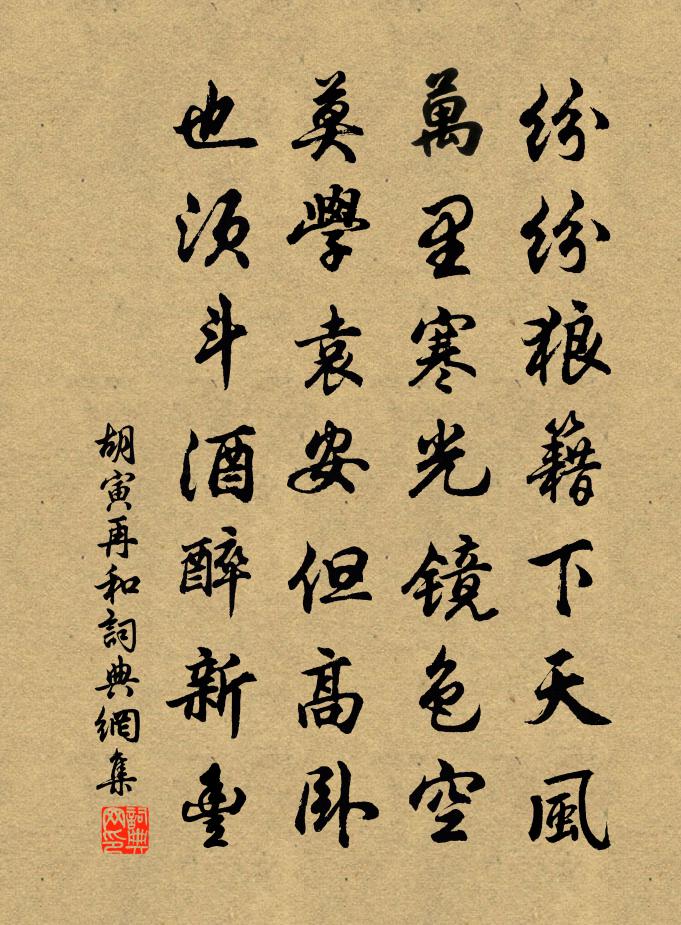 紛紛狼籍下天風
萬里寒光鏡色空
莫學袁安但高臥
也須斗酒醉新豐
胡寅再和詞典網集
詞典网印